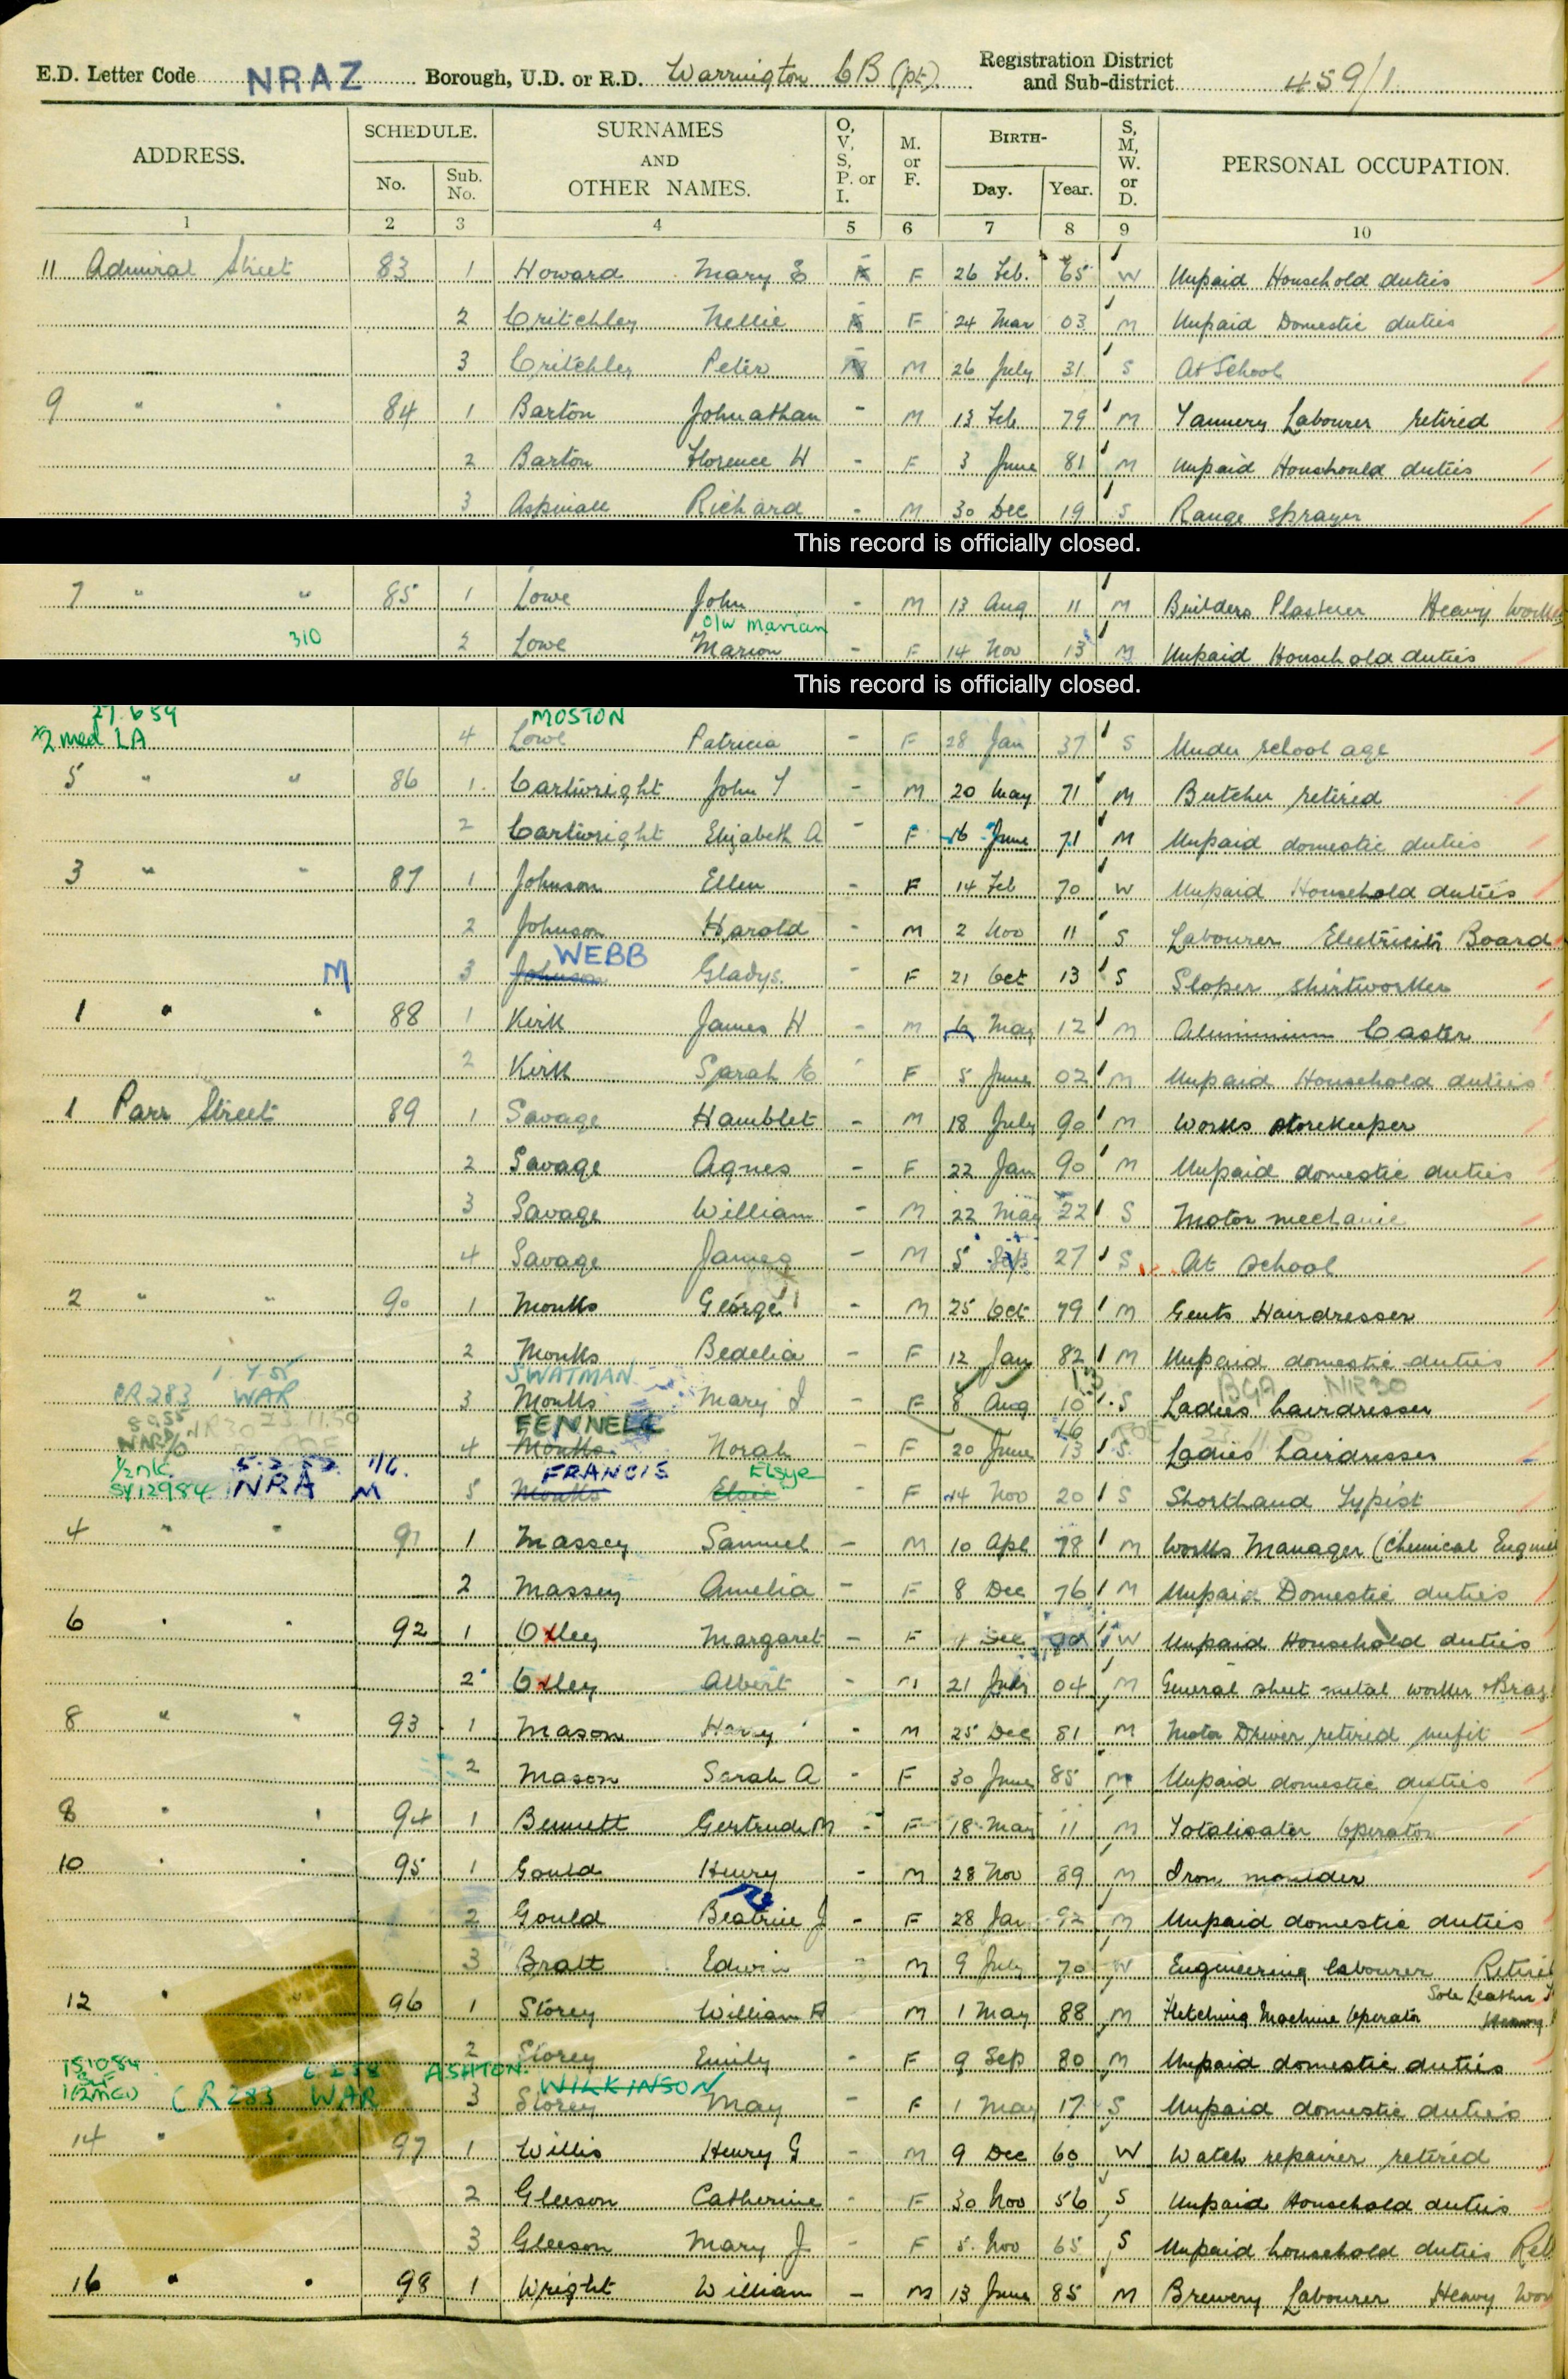 E.D. Letter Code NRAZ Borough, U.D. or R.D. Warrington C B (pt) Registration District and Sub-district 459/1
ADDRESS. SCHEDULE. No. Sub. No. SURNAMES AND OTHER NAMES. O, V, S, P. or I. M. or F. BIRTH- Day. Year. S, M, W. or D. PERSONAL OCCUPATION.
1 2 3 4 5 6 7 8 9 10
11 Admiral Street 83 1 Howard Mary E - F 26 Feb. 65 W Unpaid Household duties
2 Critchley Nellie - F 24 Mar 03 M Unpaid Domestic duties
3 Critchley Peter - M 26 July 31 S At School
9 " " 84 1 Barton Johnathan - M 13 Feb 79 M Tannery Labourer retired
2 Barton Florence H - F 3 June 81 M Unpaid Houshould duties
3 Aspinall Richard - M 30 Dec 19 S Range sprayer
This record is officially closed.
7 " " 85 1 Lowe John - M 13 Aug 11 M Builders Plasterer Heavy Worker
O/W Marian
310 2 Lowe Marion - F 14 Nov 13 M Unpaid Household duties
This record is officially closed.
27.6.59 MOSTON
½ med LA 4 Lowe Patricia - F 28 Jan 37 S Under school age
5 " " 86 1 Cartwright John T - M 20 May 71 M Butcher retired
2 Cartwright Elizabeth A - F 16 June 71 M Unpaid domestic duties
3 " " 87 1 Johnson Ellen - F 14 Feb 70 W Unpaid Household duties
2 Johnson Harold - M 2 Nov 11 S Labourer Electricity Board
WEBB
M 3 Johnson Gladys. - F 21 Oct 13 S Sloper shirtworker
1 " " 88 1 Kirk James H - M 6 May 12 M Aluminium Caster
2 Kirk Sarah E - F 5 June 02 M Unpaid Household duties
1 Parr Street 89 1 Savage Hamblet - M 18 July 90 M Works storekeeper
2 Savage Agnes - F 22 Jan 90 M Unpaid domestic duties
3 Savage William - M 22 May 22 S Motor mechanic
4 Savage James - M 5 Sep 27 S At school
2 " " 90 1 Monks George - M 25 Oct 79 M Gents Hairdresser
2 Monks Bedelia - F 12 Jan 82 M Unpaid domestic duties
SWATMAN 13 BGA NR30
CR283 WAR 3 Monks Mary I - F 8 Aug 10 S Ladies hairdresser
FENNELL 16
NR30 23.11.50 4 Monks Norah - F 20 June 13 S Ladies hairdresser
FRANCIS Elsye
SY12984 NRA M 5 Monks Elsie - F 14 Nov 20 S Shorthand Typist
4 " " 91 1 Massey Samuel - M 10 Apl 78 M Works Manager (Chemical Engine
2 Massey Amelia - F 8 Dec 76 M Unpaid Domestic duties
6 " " 92 1 Oxley Margaret - F 1 Dec W Unpaid Household duties
2 Oxley Albert - M 21 July 04 M General sheet metal worker + Braz
8 " " 93 1 Mason Harry - M 25 Dec 81 M Motor Driver retired unfit
2 Mason Sarah A - F 30 June 85 M Unpaid domestic duties
8 " " 94 1 Bennett Gertrude M - F 18 May 11 M Totalisator Operator
10 " " 95 1 Gould Henry - M 28 Nov 89 M Iron moulder
2 Gould Beatrice J - F 28 Jan 92 M Unpaid domestic duties
3 Bratt Edwin - M 9 July 70 W Engineering labourer Retired
Sole Leather
12 " " 96 1 Storey William H M 1 May 88 M Fletching Machine Operator Heavy
2 Storey Emily - F 9 Sep 80 M Unpaid domestic duties
6.2.58 ASHTON. WILKINSON
CR283 WAR 3 Storey May - F 1 May 17 S Unpaid domestic duties
14 " " 97 1 Willis Henry G - M 9 Dec 60 W Watch repairer retired
2 Gleeson Catherine - F 30 Nov 56 S Unpaid Household duties
3 Gleeson Mary J - F 5 Nov 65 S Unpaid household duties Ret
16 " " 98 1 Wright William - M 13 June 85 M Brewery Labourer Heavy Wor